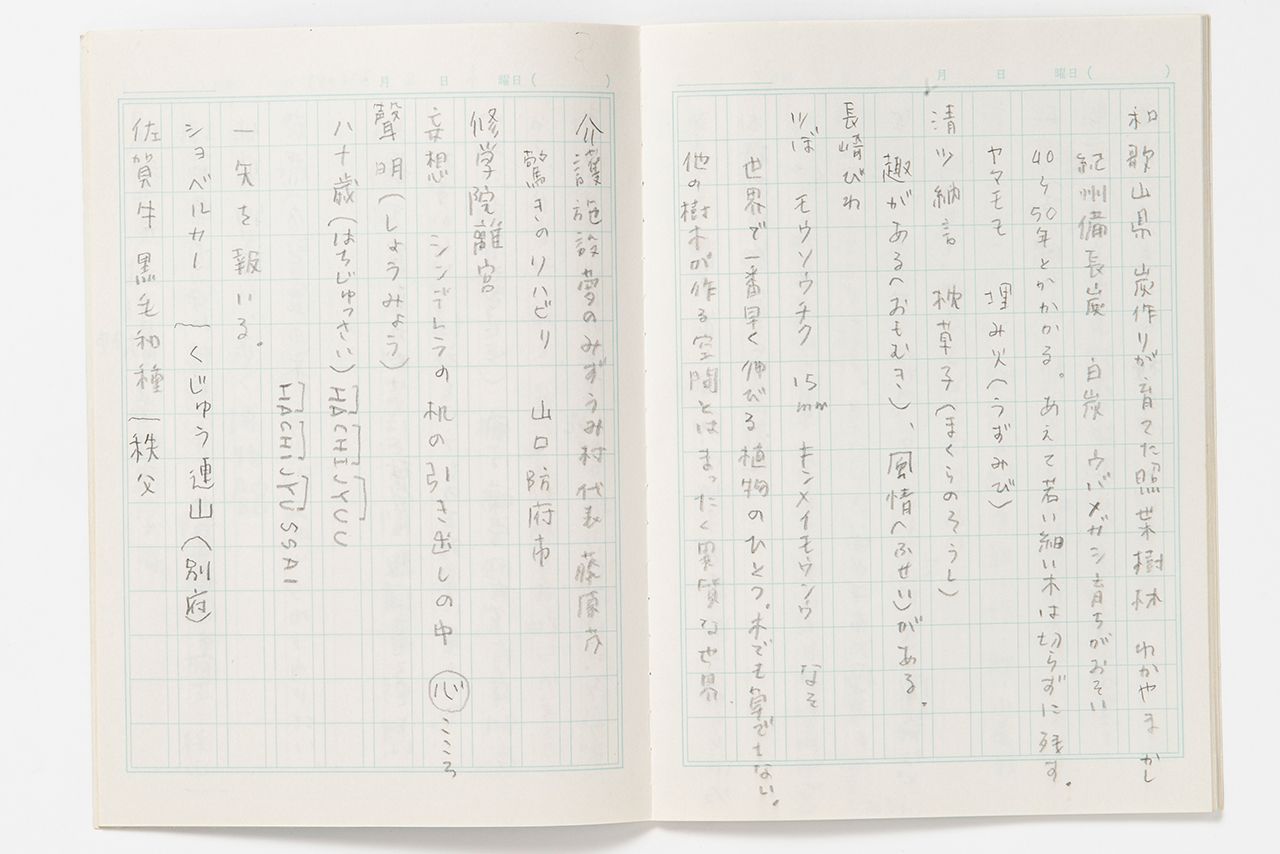 月 日 曜日( )
和歌山県 炭作りが育てた照葉樹林 わかやまかし
紀州備長炭 白炭 ウバメガシ育ちがおそい
40〜50年とかかる。あえて若い細い木は切らずに残す。
ヤマモモ 埋み火(うずみび)
清少納言 枕草子(まくらのそうし)
趣がある(おもむき)、風情(ふぜい)がある。
長崎びわ
つぼ モウソウチク 15mm キンメイモウソウ なぞ
世界で一番早く伸びる植物のひとつ。木でも草でもない。
他の樹木が作る空間とはまったく異質な世界.
月 日 曜日( )
介護施設夢のみずうみ村代表 藤原茂
驚きのリハビリ 山口防府市
修学院離宮
妄想 シンデレラの机の引き出しの中 心 こころ
聲明(しょうみょう)
八十歳(はちじゅっさい)HACHIJYUU
HACHIJYUSSAI
一矢を報いる。
ショベルカー 〜くじゅう連山(別府)
佐賀牛 黒毛和種 〜秩父